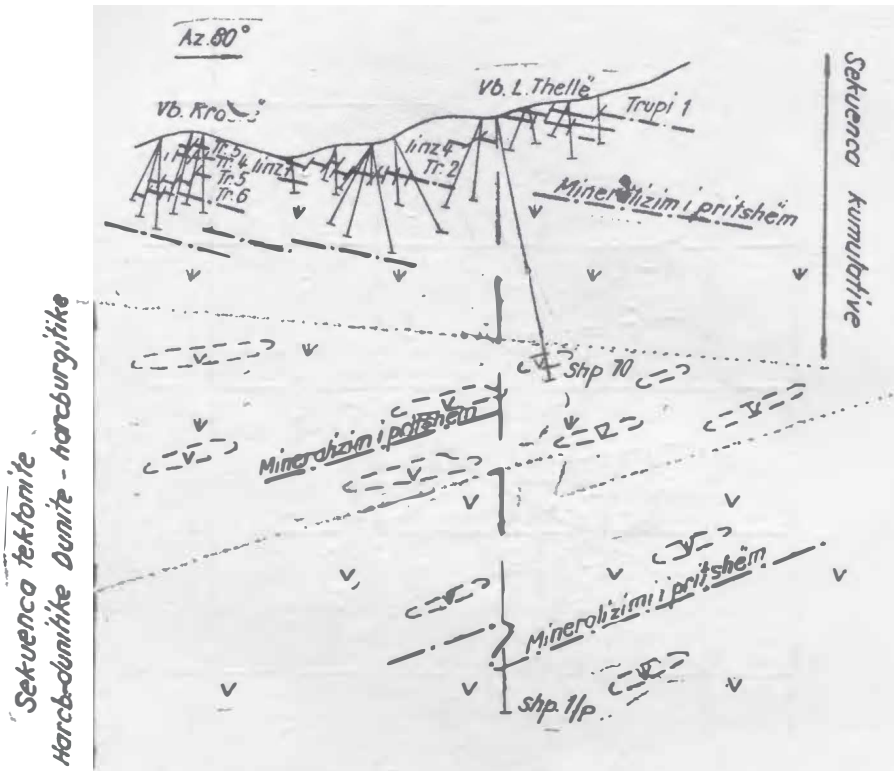 Az.80°
Vb. L.Thellë
Trupi 1
Vb.
Tr.5
Tr.4
linz4
Tr.5
Tr.2
Tr.6
Mineralizim i pritshëm
Sekuenca kumulative
Shp 70
Mineralizim i pritshëm
Mineralizimi i pritshëm
shp. 1/p
Sekuenca tektonite
Harcb-dunitike Dunite - harcburgitike